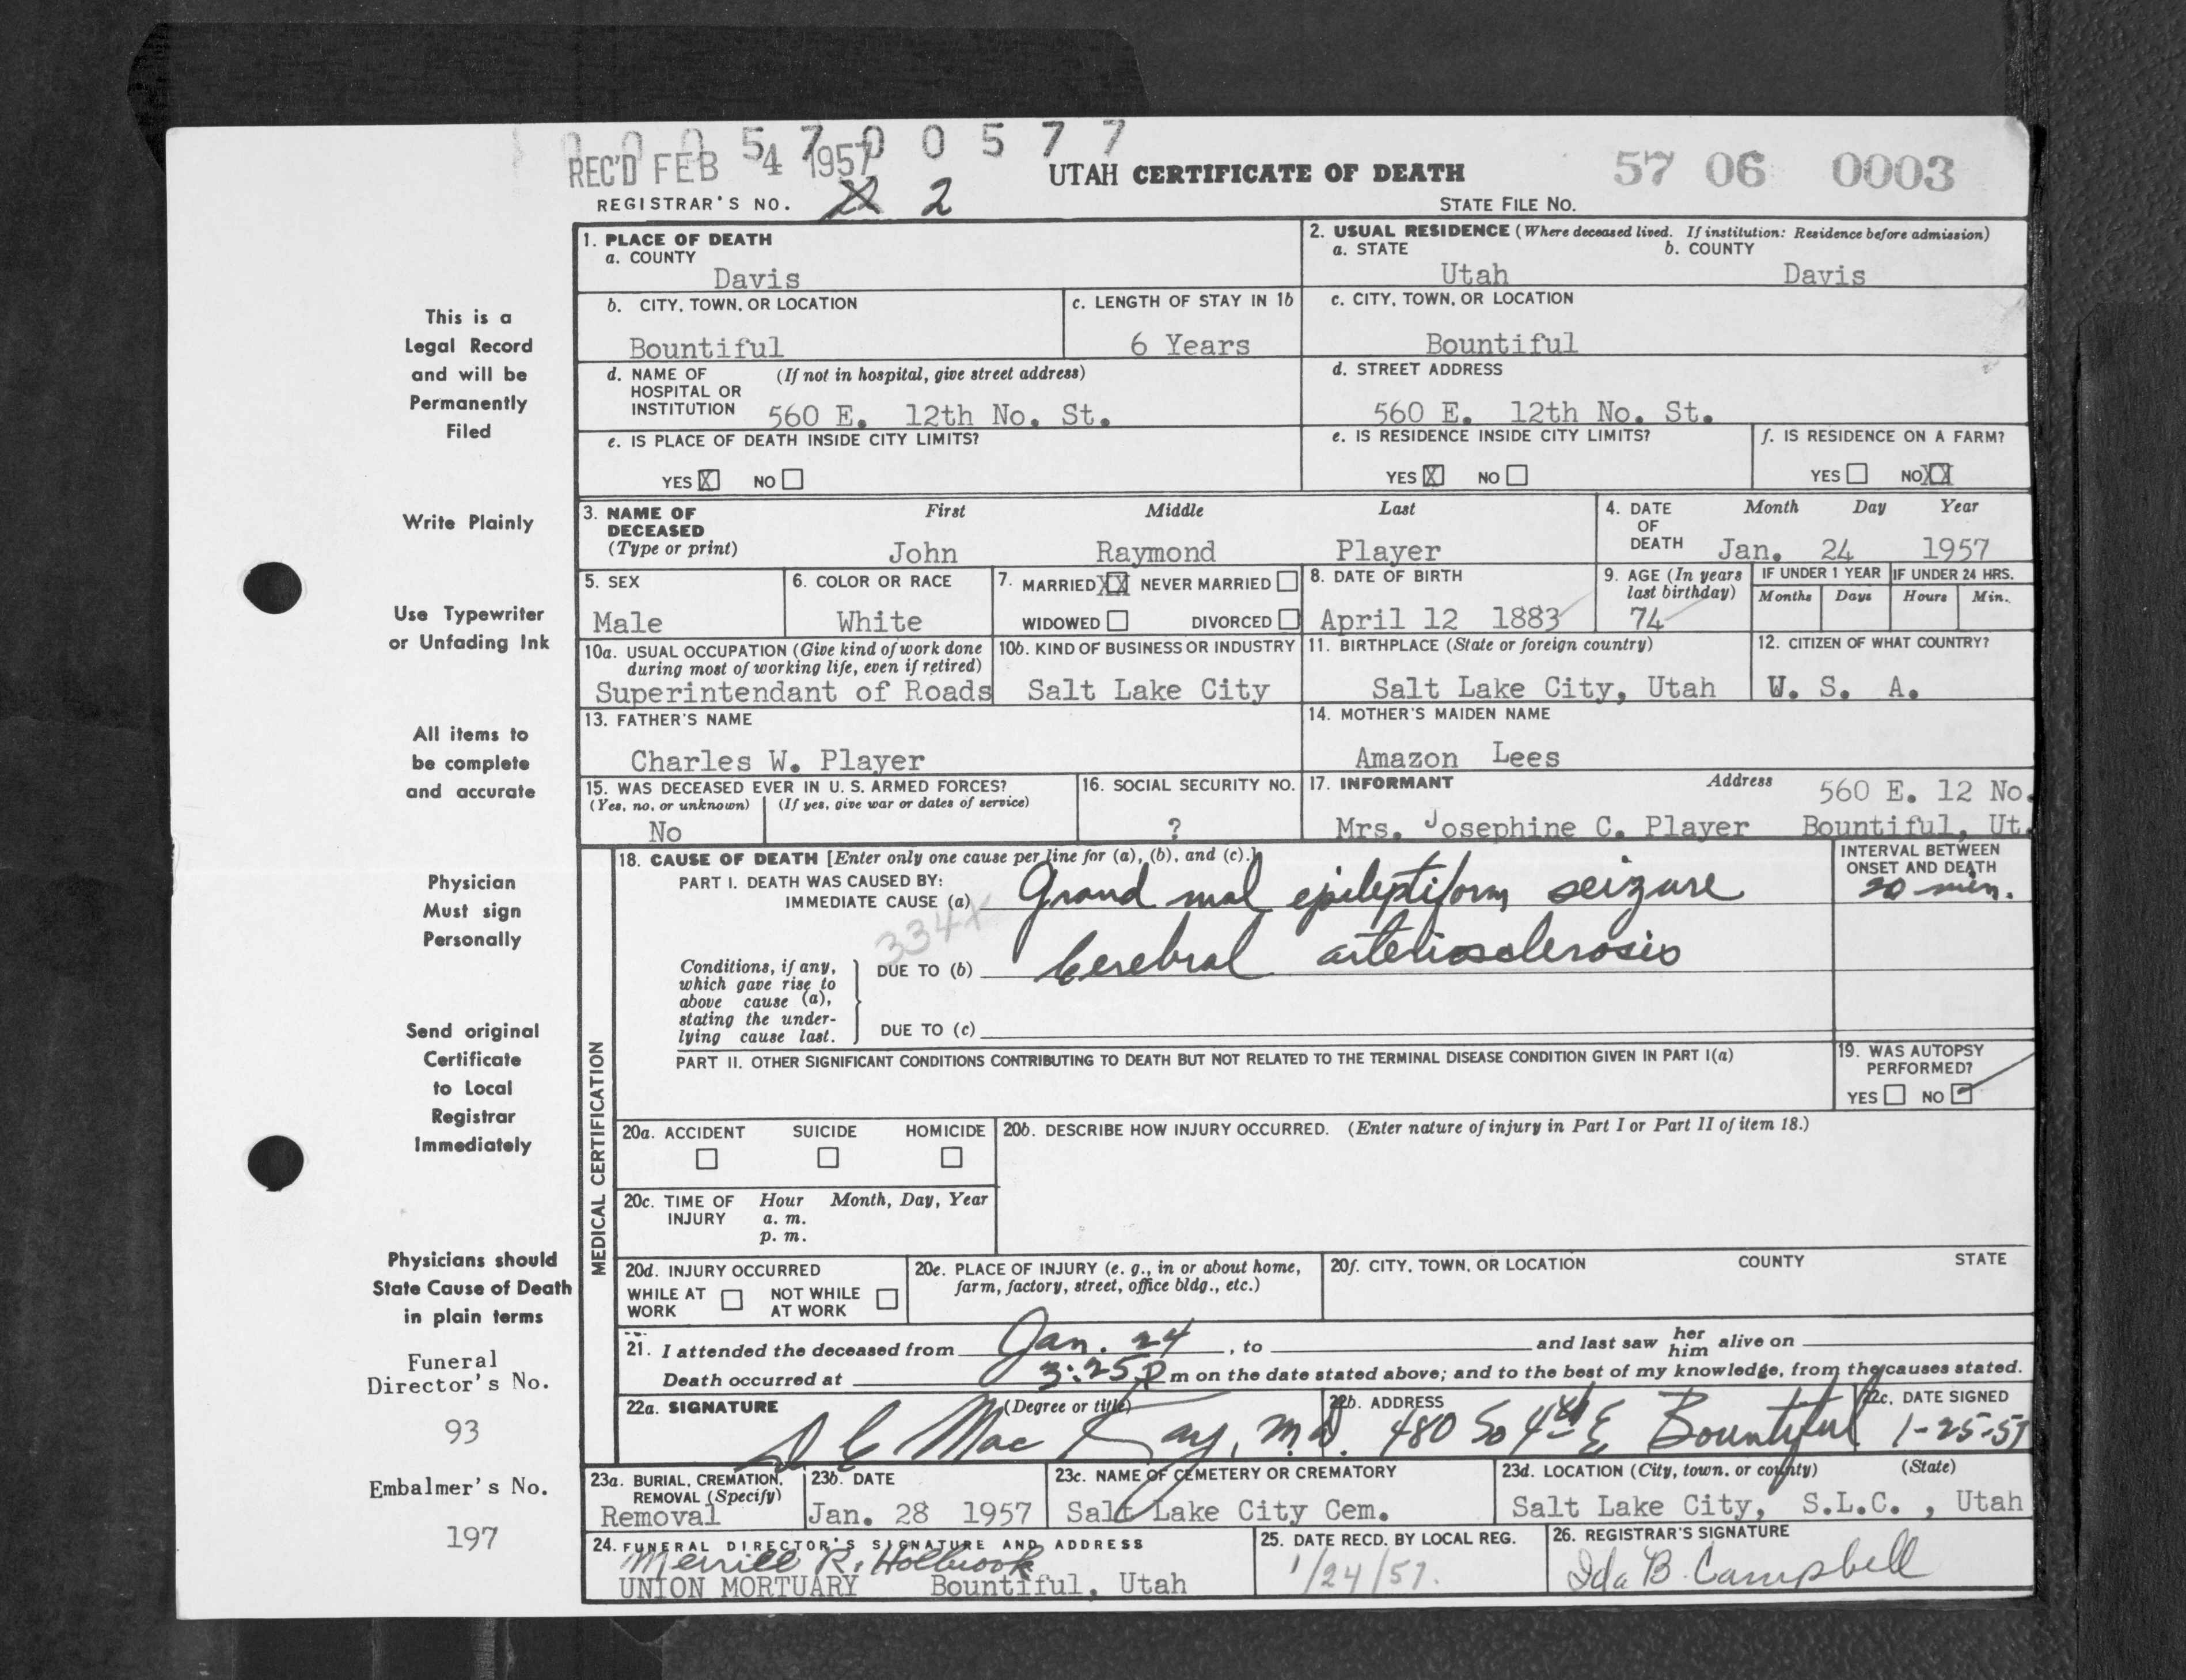 0 0 0 5 7 0 0 5 7 7
REC'D FEB 4 1957
UTAH CERTIFICATE OF DEATH
57 06 0003
REGISTRAR'S NO. 2
STATE FILE NO.
This is a
Legal Record
and will be
Permanently
Filed
Write Plainly
Use Typewriter
or Unfading Ink
All items to
be complete
and accurate
Physician
Must sign
Personally
Send original
Certificate
to Local
Registrar
Immediately
Physicians should
State Cause of Death
in plain terms
Funeral
Director's No.
93
Embalmer's No.
197
1. PLACE OF DEATH
a. COUNTY
Davis
2. USUAL RESIDENCE (Where deceased lived. If institution: Residence before admission)
a. STATE b. COUNTY
Utah Davis
b. CITY, TOWN, OR LOCATION
Bountiful
c. LENGTH OF STAY IN 1b
6 Years
c. CITY, TOWN, OR LOCATION
Bountiful
d. NAME OF (If not in hospital, give street address)
HOSPITAL OR
INSTITUTION 560 E. 12th No. St.
d. STREET ADDRESS
560 E. 12th No. St.
e. IS PLACE OF DEATH INSIDE CITY LIMITS?
YES X NO
e. IS RESIDENCE INSIDE CITY LIMITS?
YES X NO
f. IS RESIDENCE ON A FARM?
YES NO XX
3. NAME OF First Middle Last
DECEASED
(Type or print) John Raymond Player
4. DATE Month Day Year
OF
DEATH Jan. 24 1957
5. SEX
Male
6. COLOR OR RACE
White
7. MARRIED XX NEVER MARRIED
WIDOWED DIVORCED
8. DATE OF BIRTH
April 12 1883
9. AGE (In years
last birthday)
74
IF UNDER 1 YEAR IF UNDER 24 HRS.
Months Days Hours Min.
10a. USUAL OCCUPATION (Give kind of work done
during most of working life, even if retired)
Superintendant of Roads
10b. KIND OF BUSINESS OR INDUSTRY
Salt Lake City
11. BIRTHPLACE (State or foreign country)
Salt Lake City, Utah
12. CITIZEN OF WHAT COUNTRY?
W. S. A.
13. FATHER'S NAME
Charles W. Player
14. MOTHER'S MAIDEN NAME
Amazon Lees
15. WAS DECEASED EVER IN U. S. ARMED FORCES?
(Yes, no, or unknown) (If yes, give war or dates of service)
No
16. SOCIAL SECURITY NO.
?
17. INFORMANT Address 560 E. 12 No.
Mrs. Josephine C. Player Bountiful, Ut.
MEDICAL CERTIFICATION
18. CAUSE OF DEATH [Enter only one cause per line for (a), (b), and (c).]
PART I. DEATH WAS CAUSED BY:
IMMEDIATE CAUSE (a) Grand mal epileptiform seizure
INTERVAL BETWEEN
ONSET AND DEATH
20 min.
334X
Conditions, if any,
which gave rise to
above cause (a),
stating the under-
lying cause last.
DUE TO (b) Cerebral arteriosclerosis
DUE TO (c)
PART II. OTHER SIGNIFICANT CONDITIONS CONTRIBUTING TO DEATH BUT NOT RELATED TO THE TERMINAL DISEASE CONDITION GIVEN IN PART I(a)
19. WAS AUTOPSY
PERFORMED?
YES NO
20a. ACCIDENT SUICIDE HOMICIDE
20b. DESCRIBE HOW INJURY OCCURRED. (Enter nature of injury in Part I or Part II of item 18.)
20c. TIME OF Hour Month, Day, Year
INJURY a. m.
p. m.
20d. INJURY OCCURRED
WHILE AT NOT WHILE
WORK AT WORK
20e. PLACE OF INJURY (e. g., in or about home,
farm, factory, street, office bldg., etc.)
20f. CITY, TOWN, OR LOCATION COUNTY STATE
21. I attended the deceased from Jan. 24, to and last saw her him alive on
Death occurred at 3:25 P m on the date stated above; and to the best of my knowledge, from the causes stated.
22a. SIGNATURE (Degree or title)
D C Mac Kay, M.D.
22b. ADDRESS
480 So 4th E Bountiful
22c. DATE SIGNED
1-25-57
23a. BURIAL, CREMATION,
REMOVAL (Specify)
Removal
23b. DATE
Jan. 28 1957
23c. NAME OF CEMETERY OR CREMATORY
Salt Lake City Cem.
23d. LOCATION (City, town, or county) (State)
Salt Lake City, S.L.C. , Utah
24. FUNERAL DIRECTOR'S SIGNATURE AND ADDRESS
Merrill R. Holbrook
UNION MORTUARY Bountiful, Utah
25. DATE RECD. BY LOCAL REG.
1/24/57.
26. REGISTRAR'S SIGNATURE
Ida B. Campbell